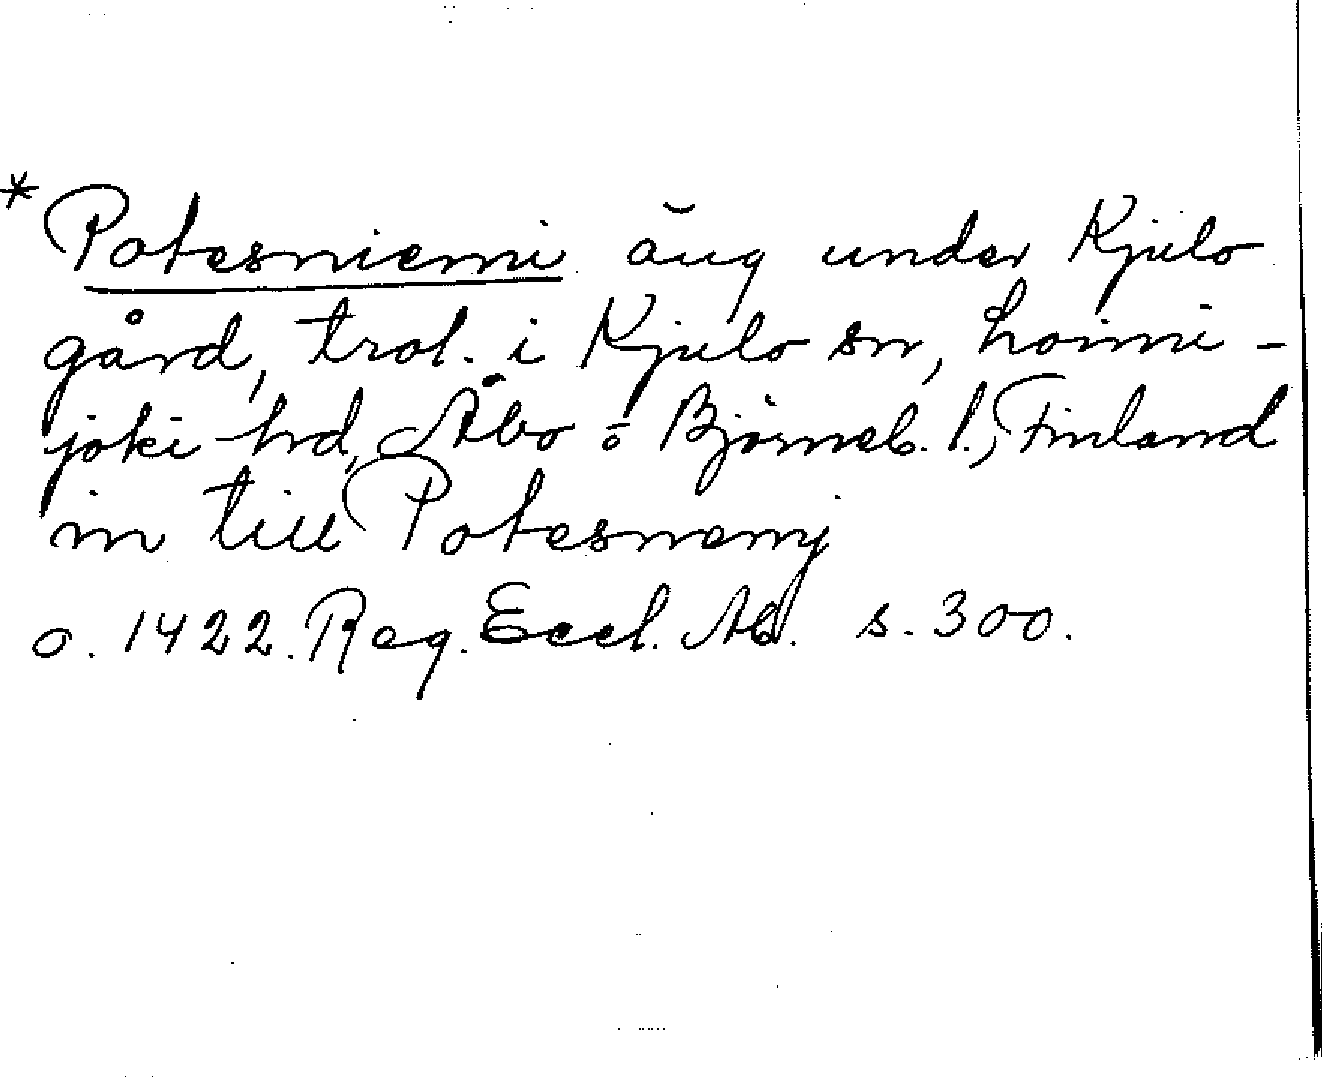 * Potesniemi äng under Kjulo
gård, trol. i Kjulo sn, Loimi-
joki hd, Åbo o Björneb. l., Finland
in till Potesnemj
o. 1422. Reg. Eccl. Ab. s. 300.